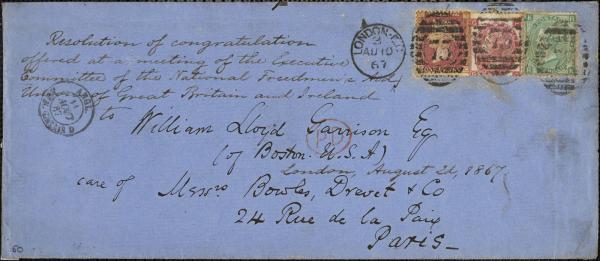 Resolution of congratulation
offered at a meeting of the Executive
Committee of the National Freedmen's Aid
Union of Great Britain and Ireland
to William Lloyd Garrison Esq
(of Boston. U.S.A)
London, August 2d, 1867.
care of Messrs Bowles, Drevet & Co
24 Rue de la Paix
Paris_
LONDON-E.C
AU 10
67
PD
60